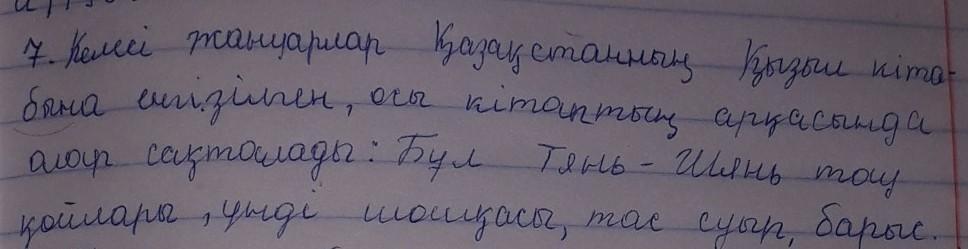 7. Келесі жануарлар Қазақстанның Қызыл кіта-
бына енгізілген, осы кітаптың арқасында
олар сақталады: Бұл Тянь-Шянь тау
қойлары, үнді шошқасы, тас суыр, барыс.